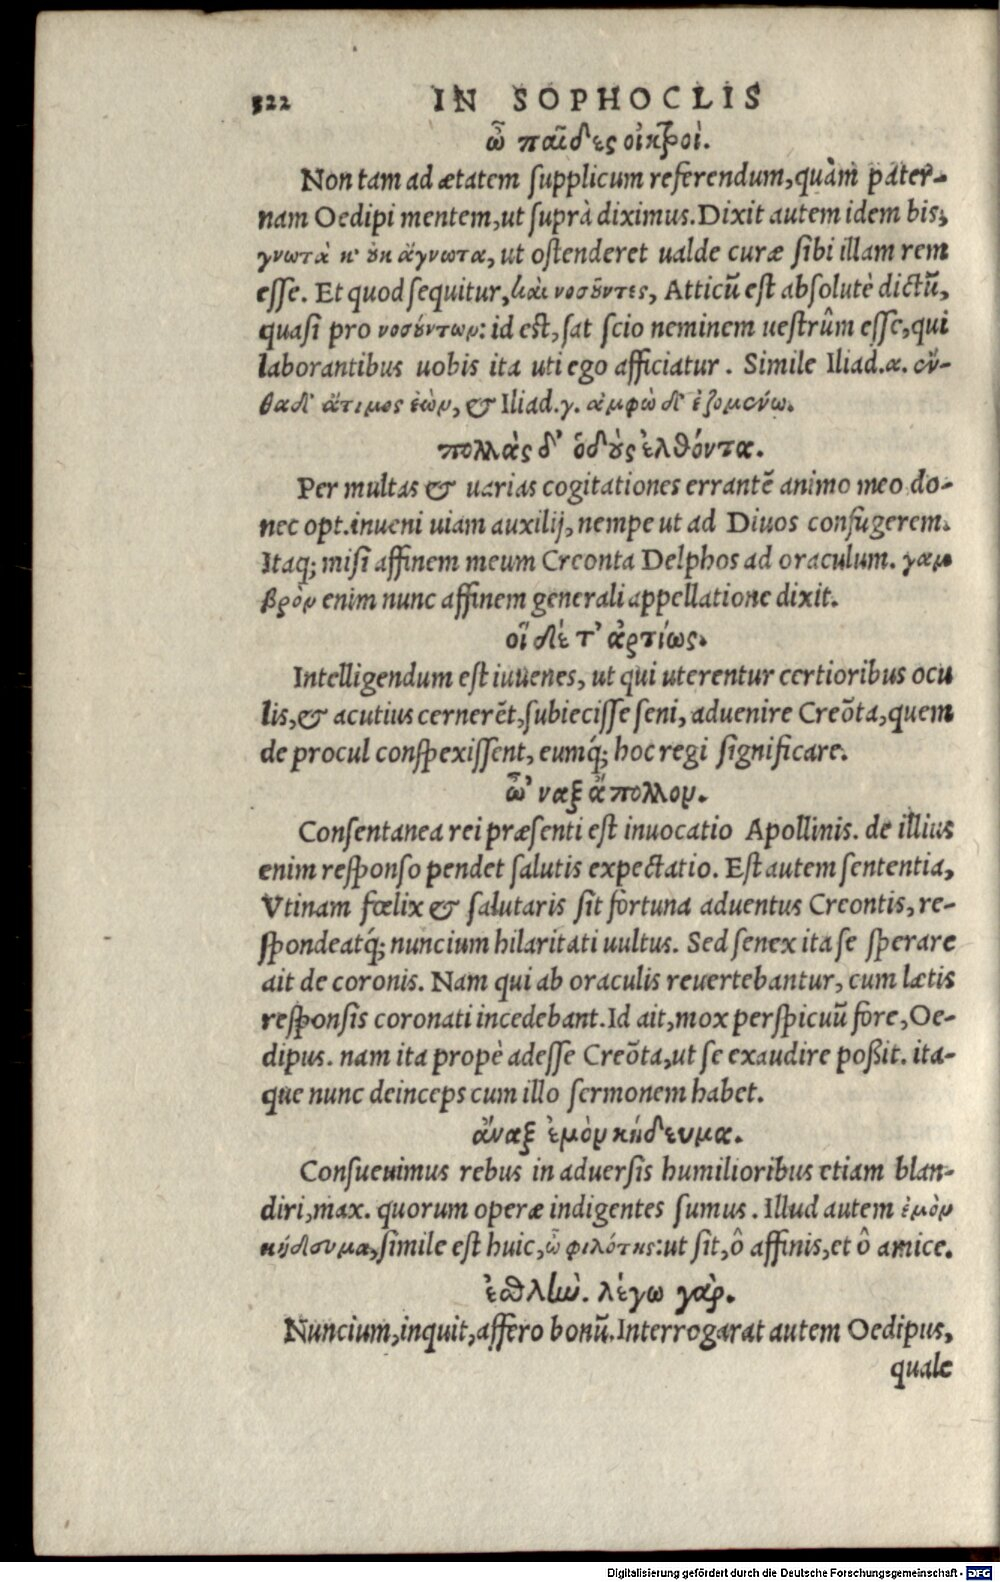 322 IN SOPHOCLIS
ὦ παῖδες οἰκτροὶ.
Non tam ad ætatem supplicum referendum, quàm pater-
nam Oedipi mentem, ut suprà diximus. Dixit autem idem bis,
γνωτὰ κ' οὐκ ἄγνωτα, ut ostenderet ualde curæ sibi illam rem
esse. Et quod sequitur, καὶ νοσοῦντες, Atticũ est absolutè dictũ,
quasi pro νοσούντων: id est, sat scio neminem uestrûm esse, qui
laborantibus uobis ita uti ego afficiatur. Simile Iliad.α. ἐν-
θαδ' ἄτιμος ἐὼν, & Iliad.γ. ἀμφὼ δ' ἑζομένω.
πολλὰς δ' ὁδοὺς ἐλθόντα.
Per multas & uarias cogitationes errantẽ animo meo do-
nec opt. inueni uiam auxilij, nempe ut ad Diuos confugerem.
Itaq; misi affinem meum Creonta Delphos ad oraculum. γαμ
βρὸν enim nunc affinem generali appellatione dixit.
οἵ δέ τ' ἀρτίως.
Intelligendum est iuuenes, ut qui uterentur certioribus ocu
lis, & acutius cernerẽt, subiecisse seni, aduenire Creõta, quem
de procul conspexissent, eumq́; hoc regi significare.
ὦ' ναξ ἄπολλον.
Consentanea rei præsenti est inuocatio Apollinis. de illius
enim responso pendet salutis expectatio. Est autem sententia,
Vtinam fœlix & salutaris sit fortuna aduentus Creontis, re-
spondeatq́; nuncium hilaritati uultus. Sed senex ita se sperare
ait de coronis. Nam qui ab oraculis reuertebantur, cum lætis
responsis coronati incedebant. Id ait, mox perspicuũ fore, Oe-
dipus. nam ita propè adesse Creõta, ut se exaudire poßit. ita-
que nunc deinceps cum illo sermonem habet.
ἄναξ ἐμὸν κήδευμα.
Consueuimus rebus in aduersis humilioribus etiam blan-
diri, max. quorum operæ indigentes sumus. Illud autem ἐμὸν
κήδευμα, simile est huic, ὦ φιλότης: ut sit, ô affinis, et ô amice.
ἐσθλὼ. λέγω γὰρ.
Nuncium, inquit, affero bonũ. Interrogarat autem Oedipus,
quale
Digitalisierung gefördert durch die Deutsche Forschungsgemeinschaft - DFG